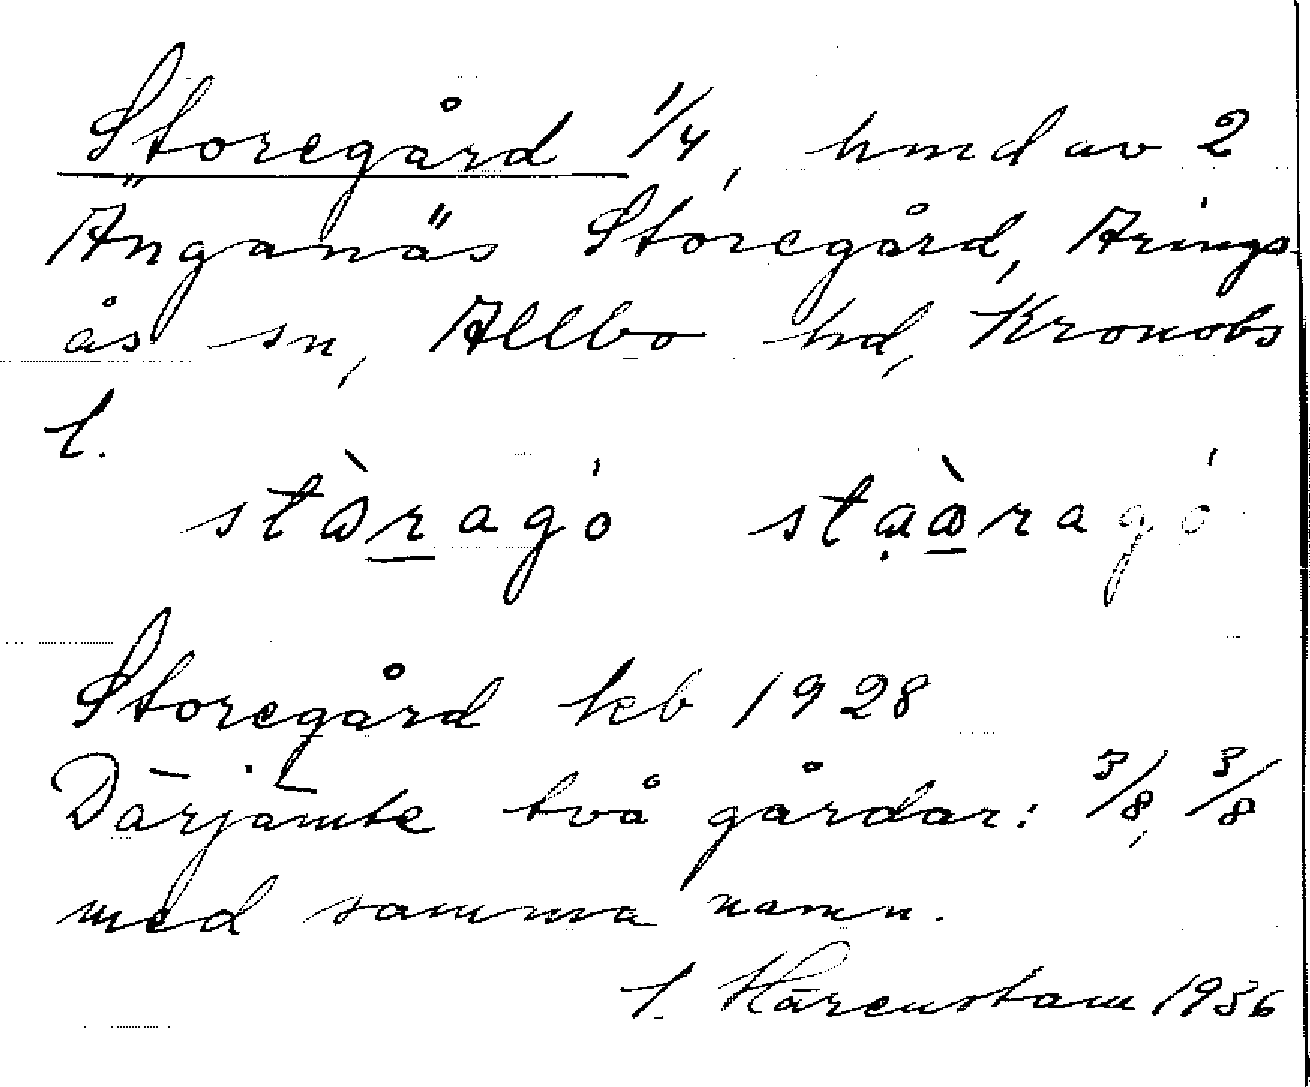 Storegård 1/4, hmd av 2
Änganäs Storegård, Arings-
ås sn, Allbo hd, Kronobs
l.
stòragó staòragó
Storegård keb 1928
Därjämte två gårdar: 3/8, 3/8
med samma namn.
Härenstam 1936